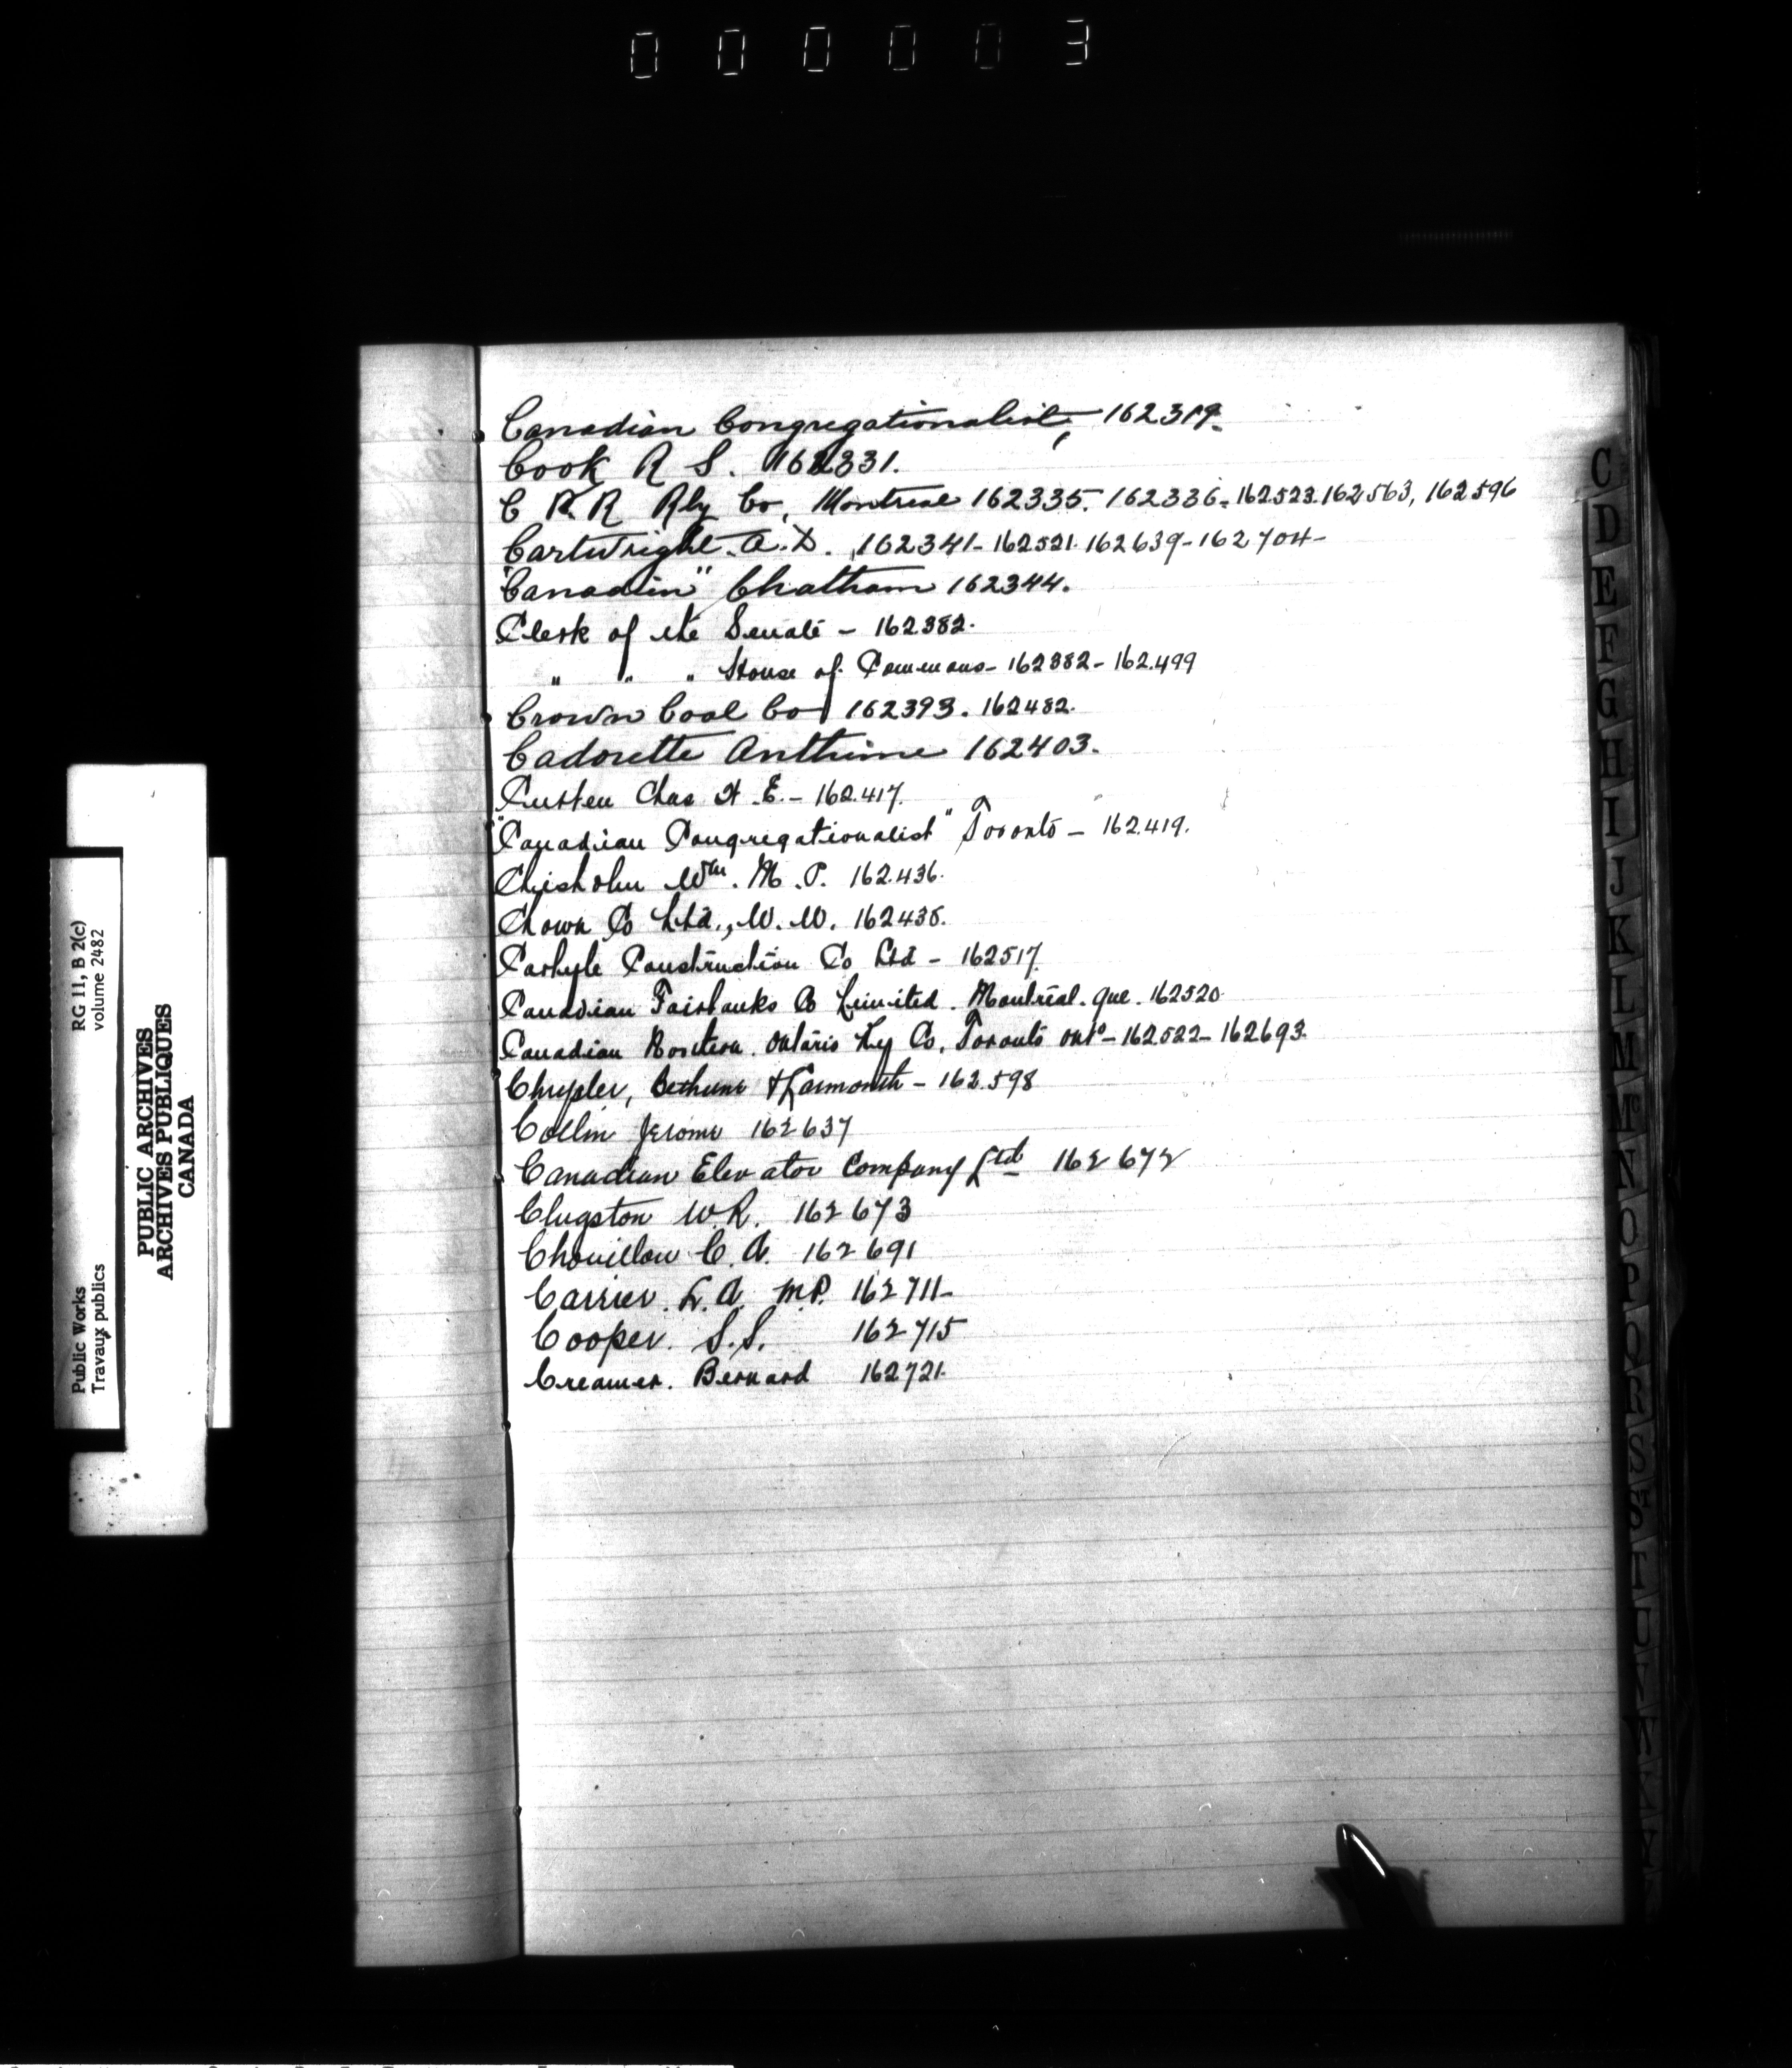 000003
Canadian Congregationalist, 162319.
Cook R S. 162331.
C P R Rly Co, Montreal 162335. 162336. 162523. 162563, 162596
Cartwright. A. D. 162341- 162521. 162639- 162704-
"Canadian" Chatham 162344.
Clerk of the Senate - 162382.
" " " House of Commons- 162382- 162.499
Crown Coal Co 162393. 162482.
Cadorette Anthime 162403.
Chas H. E. - 162.417.
"Canadian Congregationalist" Toronto - 162.419.
Chisholm Wm. M.P. 162.436.
Chown Co Ltd., W. W. 162438.
Carlyle Construction Co Ltd - 162517.
Canadian Fairbanks Co Limited. Montreal. Que. 162520.
Canadian Northern. Ontario Ry Co. Toronto Onto- 162522- 162693.
Chrysler, Bethune & Larmonth - 162.598
Collin Jerome 162637
Canadian Elevator Company Ltd 162672
Clugston W.R. 162673
Chouillou C. A. 162691
Carrier. L. A. M.P. 162711-
Cooper. S.S. 162715
Creamer. Bernard 162721.
RG 11, B 2(c)
volume 2482
Public Works
Travaux publics
PUBLIC ARCHIVES
ARCHIVES PUBLIQUES
CANADA
C
D
E
F
G
H
I
J
K
L
M
Mc
N
O
P
Q
R
S
T
U